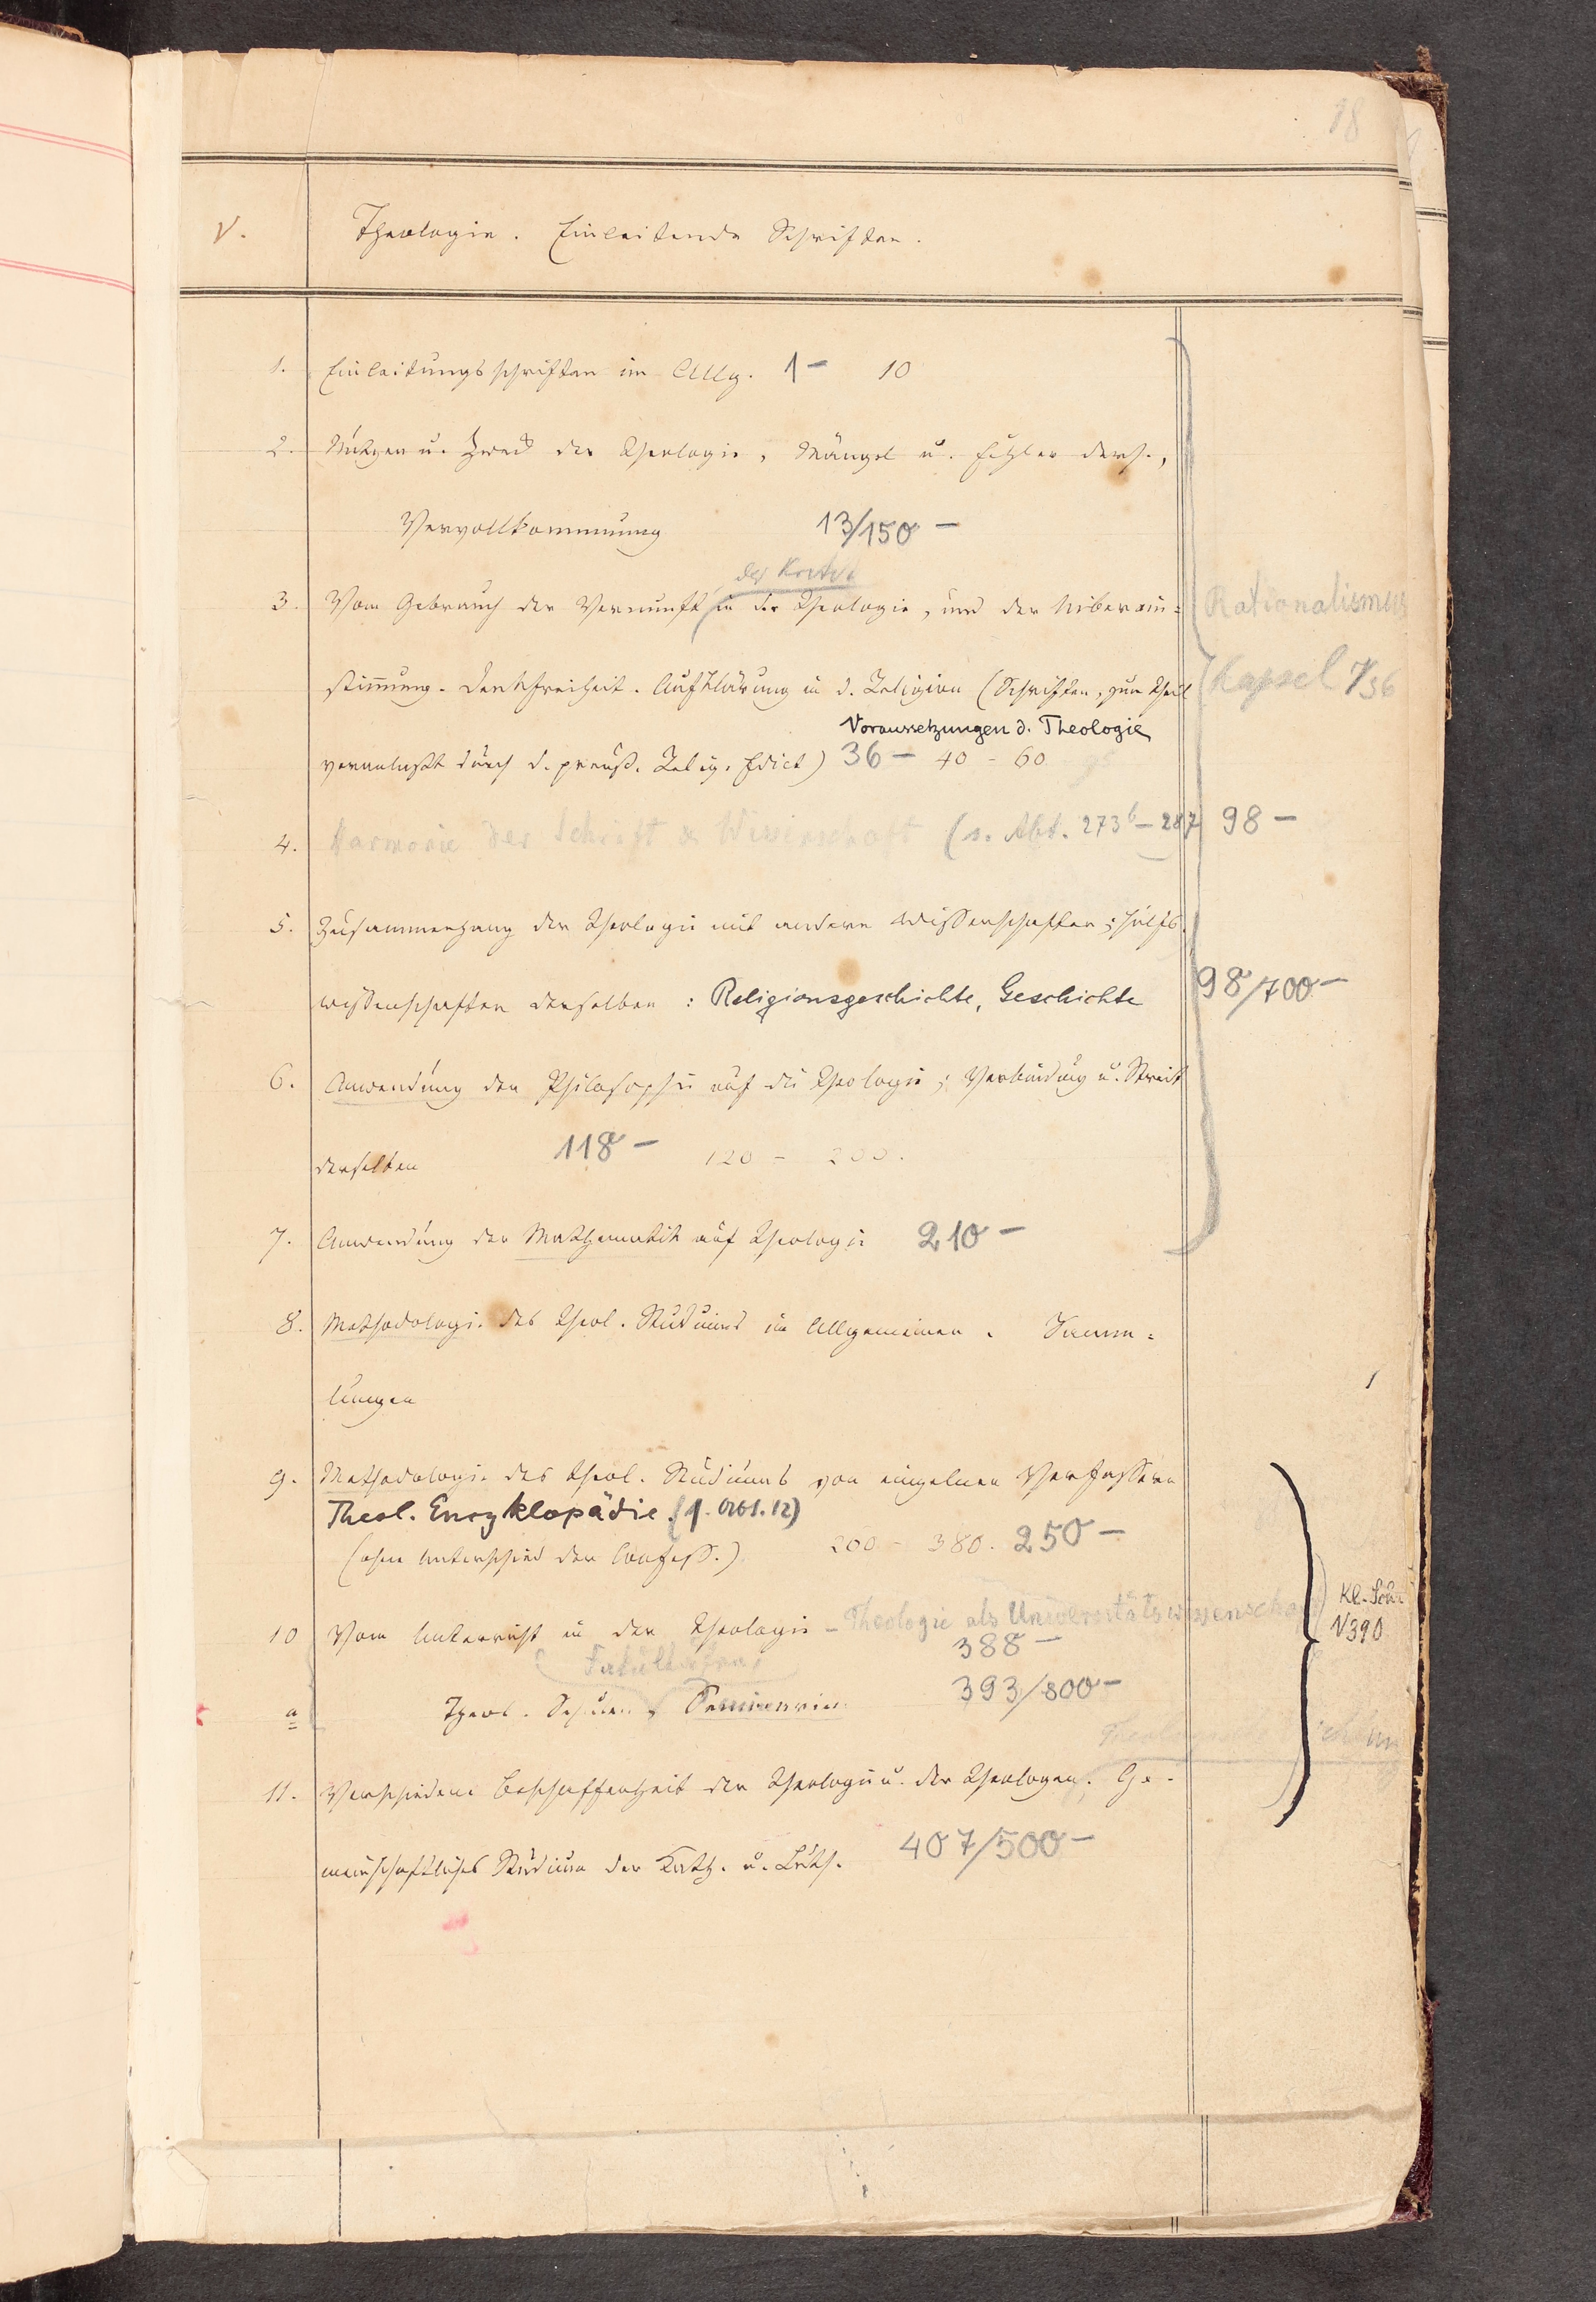 98
V. Theologie. Einleitende Schriften.
1. Einleitungsschriften im Allg. 1- 10
2. Nutzen u. Zweck der Theologie, Mängel u. Fehler ders.,
Vervollkommnung 13/150 -
der Kritik
3. Vom Gebrauch der Vernunft in der Theologie, und der Uiberein= Rationalismus
stimmung. Denkfreiheit. Aufklärung in d. Religion (Schriften, zum Theil Kapsel V36
Voraussetzungen d. Theologie
veranlaßt durch d. preuß. Relig. Edict) 36 - 40 - 60
4. Harmonie der Schrift & Wissenschaft (s. Abt. 273b - 287 98 -
5. Zusammenhang der Theologie mit andern Wissenschaften; Hülfs-
wissenschaften derselben: Religionsgeschichte, Geschichte 98/700 -
6. Anwendung der Philosophie auf die Theologie; Verbindung u. Streit
derselben 118 - 120 - 200.
7. Anwendung der Mathematik auf Theologie 210 -
8. Methodologie des theol. Studiums im Allgemeinen. Samm=
lungen
9. Methodologie des theol. Studiums von einzelnen Verfassern
Theol. Enzyklopädie.
(ohne Unterschied der Confess.) 200 - 380. 250 -
10 Vom Unterricht in der Theologie - Theologie als Universitätswissenschaft Kl. Schr.
388 - V390
Fakultäten
a Theol. Schulen, Seminarien 393/800 -
11. Verschiedene Beschaffenheit der Theologie u. der Theologen. Ge-
meinschaftliches Studium der Kath. u. Luth. 407/500 -